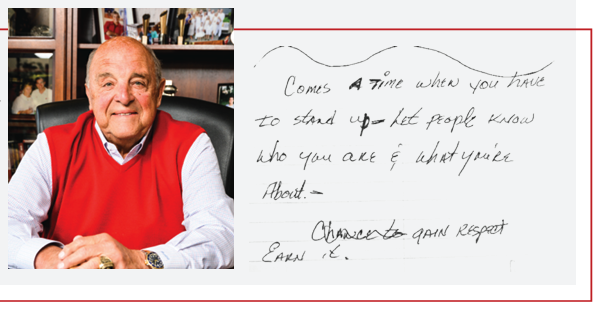 Comes A Time when you have
to stand up - Let people know
who you are & what you're
About. -
Chance to gain respect
Earn it.